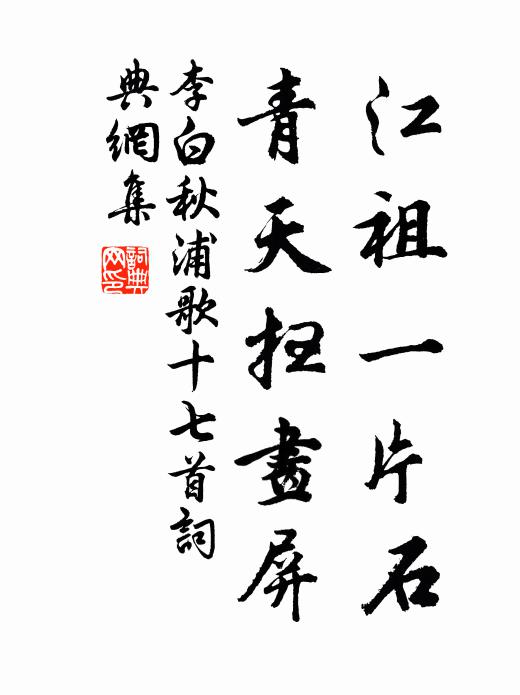 江祖一片石
青天扫畫屏
李白秋浦歌十七首詞
典網集
詞典网印